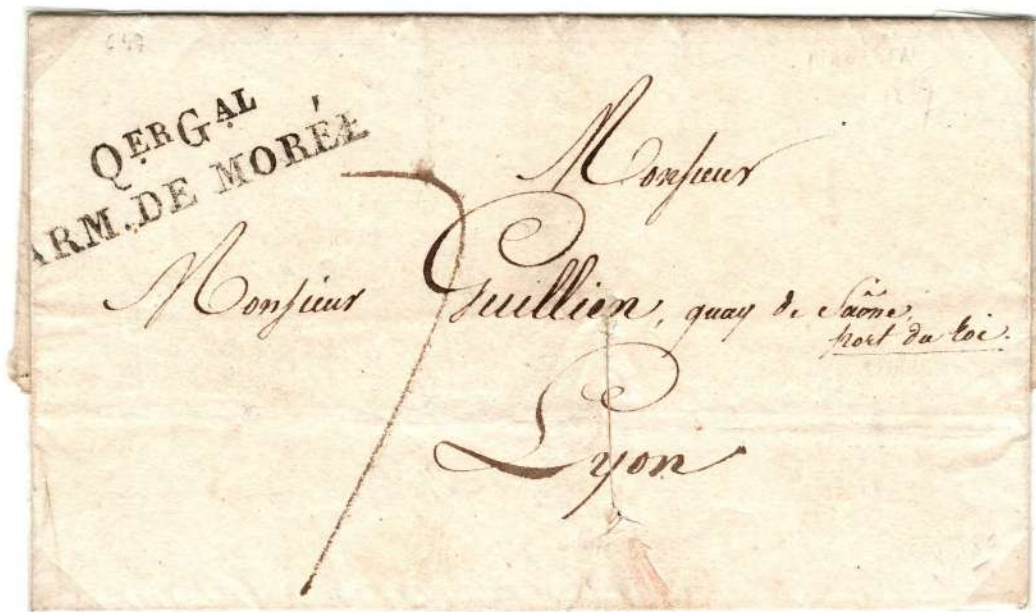 QERGAL
ARM. DE MORÉE
Monsieur
Monsieur Guillien, quay de Saône,
port du Roi.
Lyon
7